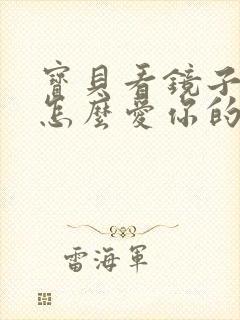 寶貝看鏡子
怎麼愛你的
雷海軍